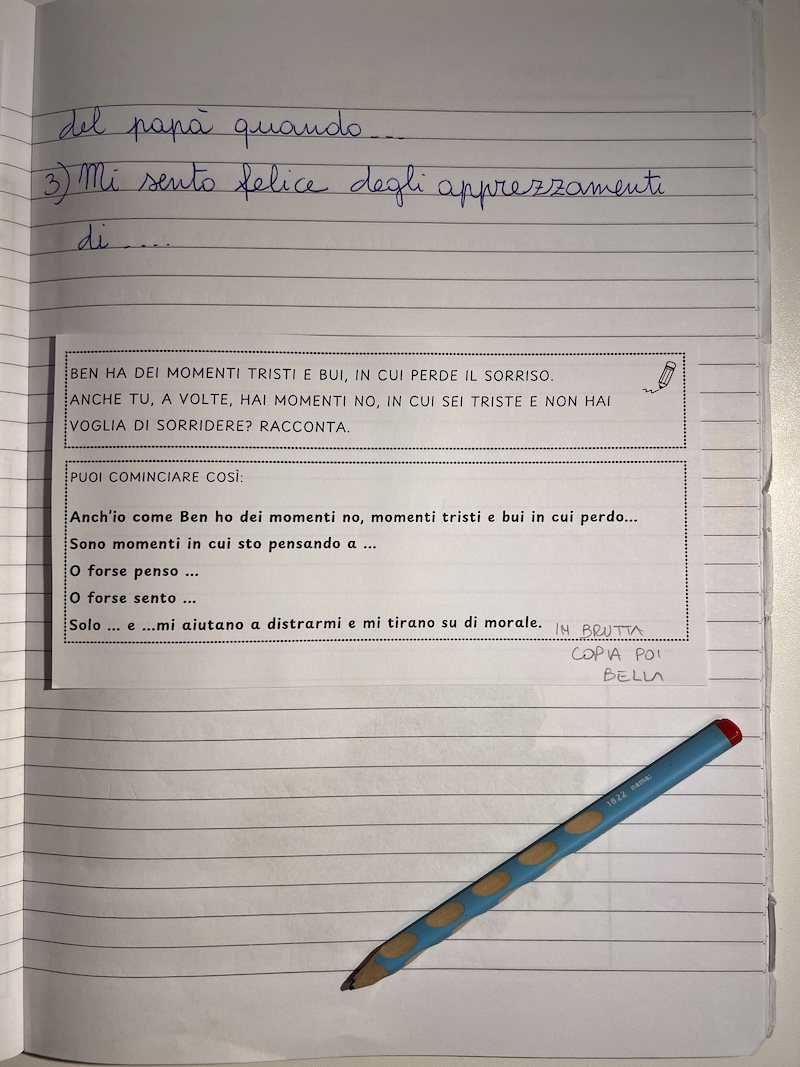 del papà quando...
3) Mi sento felice degli apprezzamenti
di ....
BEN HA DEI MOMENTI TRISTI E BUI, IN CUI PERDE IL SORRISO.
ANCHE TU, A VOLTE, HAI MOMENTI NO, IN CUI SEI TRISTE E NON HAI
VOGLIA DI SORRIDERE? RACCONTA.
PUOI COMINCIARE COSÌ:
Anch'io come Ben ho dei momenti no, momenti tristi e bui in cui perdo...
Sono momenti in cui sto pensando a ...
O forse penso ...
O forse sento ...
Solo ... e ...mi aiutano a distrarmi e mi tirano su di morale.
IN BRUTTA
COPIA POI
BELLA
1822 name: